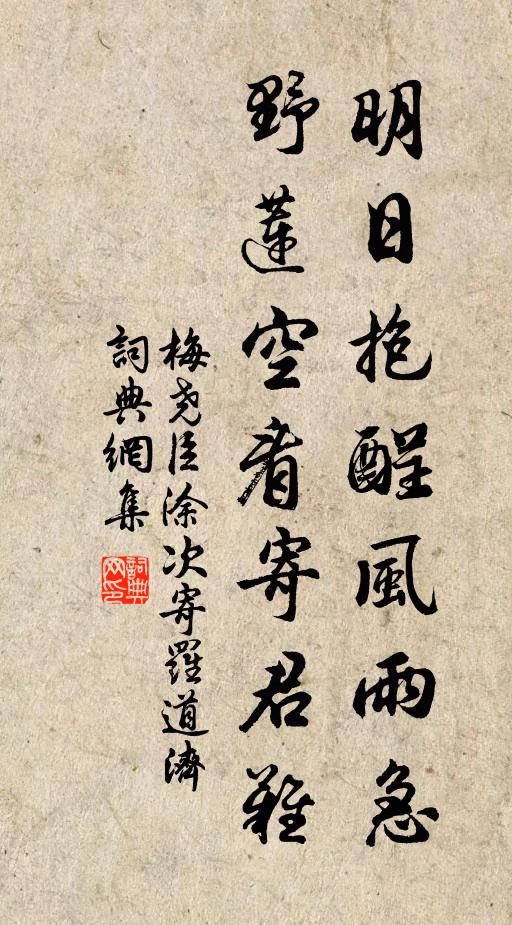 明日抱酲風雨急
野蓮空看寄君難
梅堯臣涂次寄羅道濟
詞典網集
詞典網印